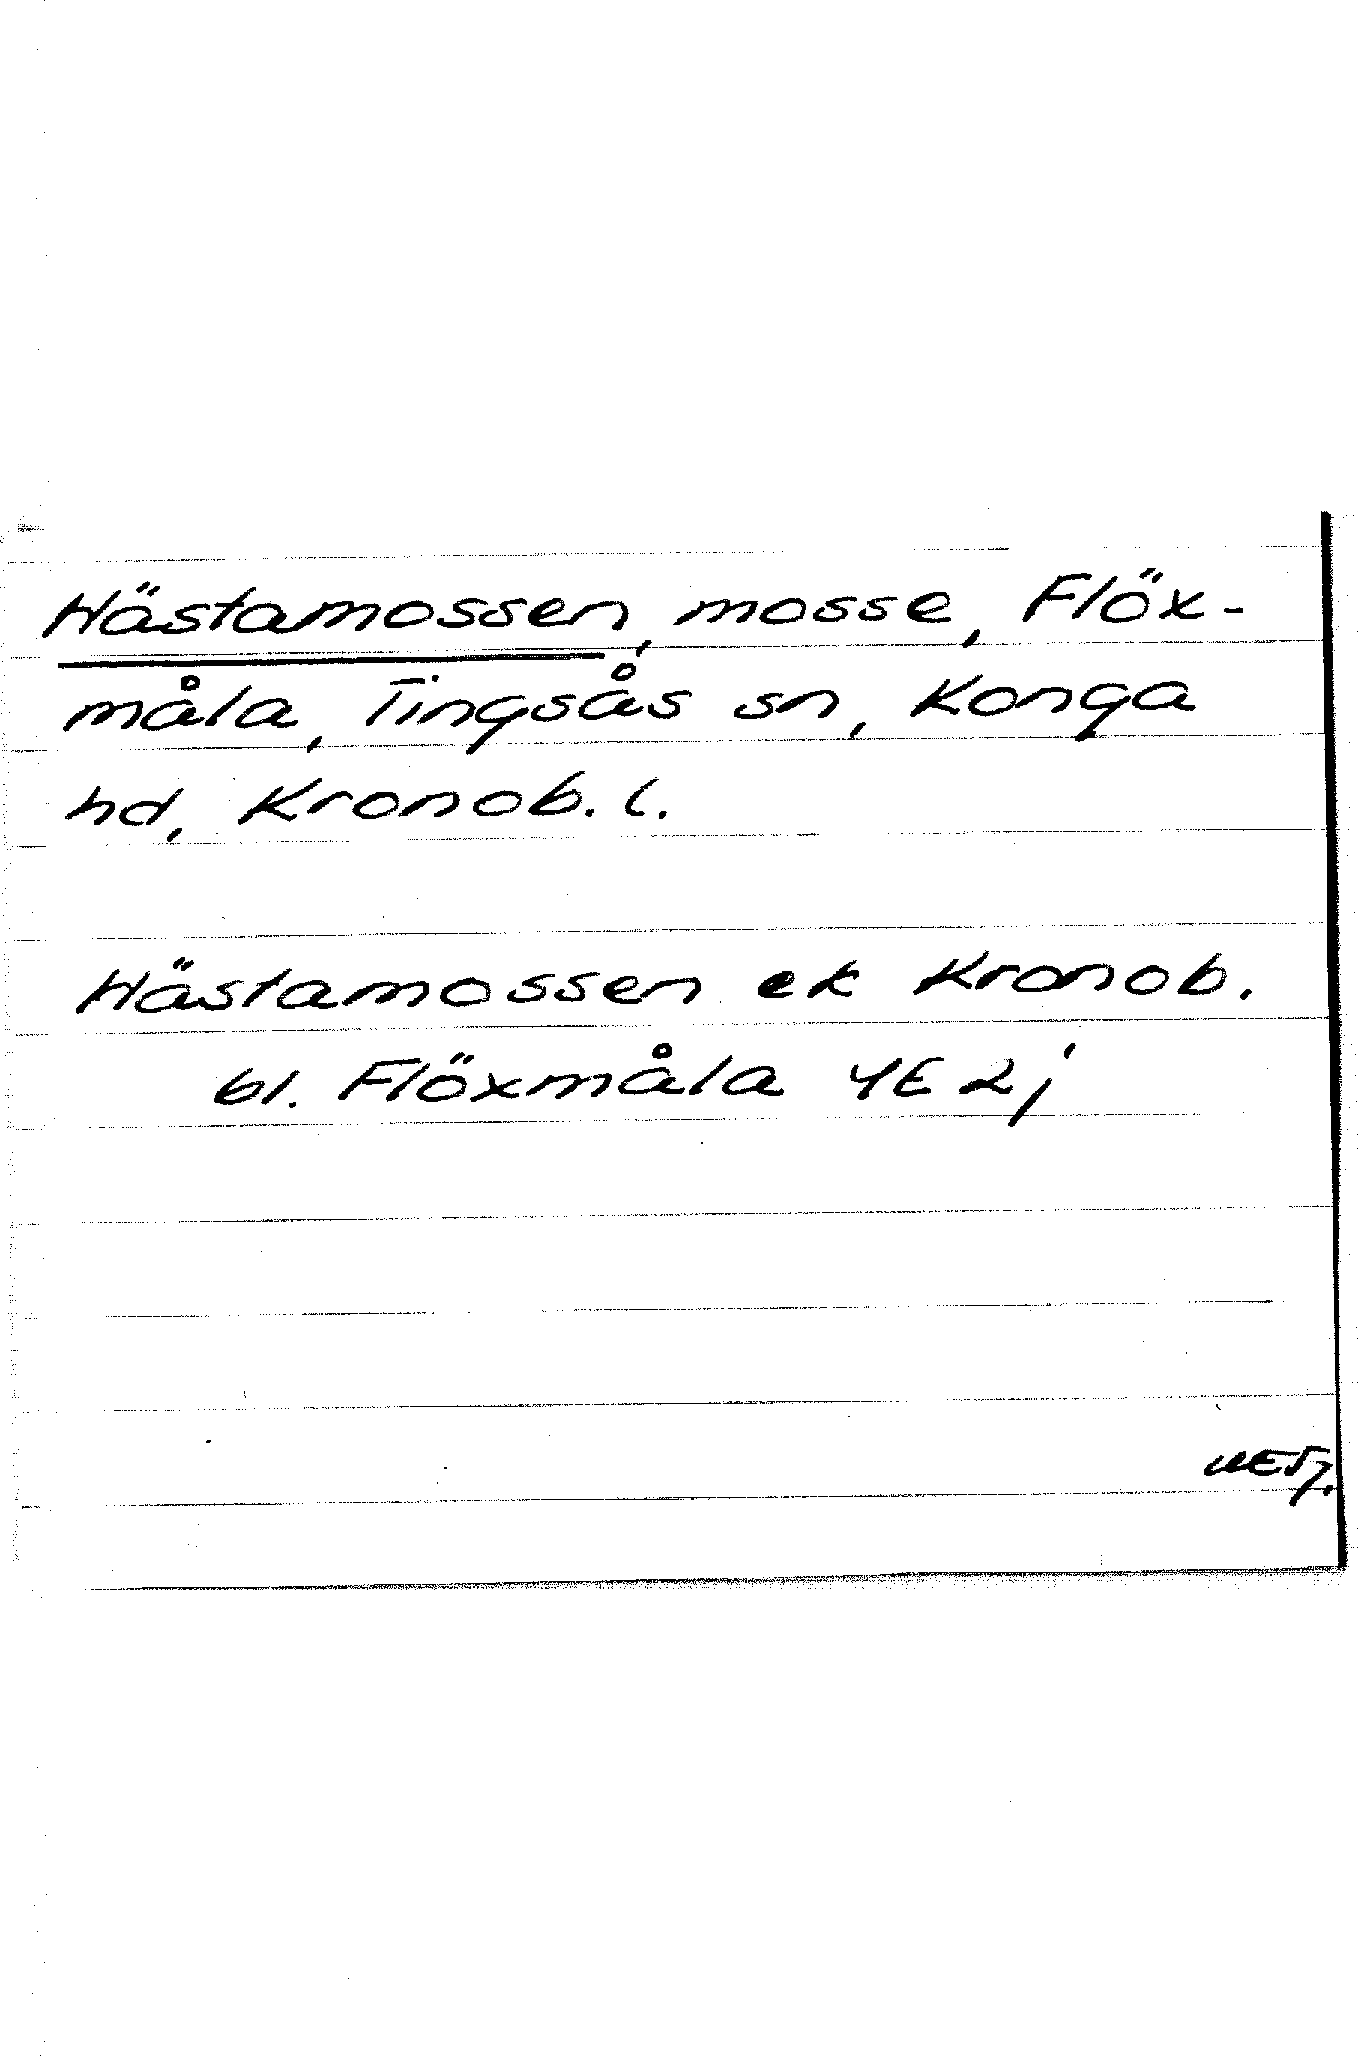 Hästamossen, mosse, Flöx-
måla, Tingsås sn, Konga
hd, Kronob. l.
Hästamossen ek Kronob.
bl. Flöxmåla 4E 2j